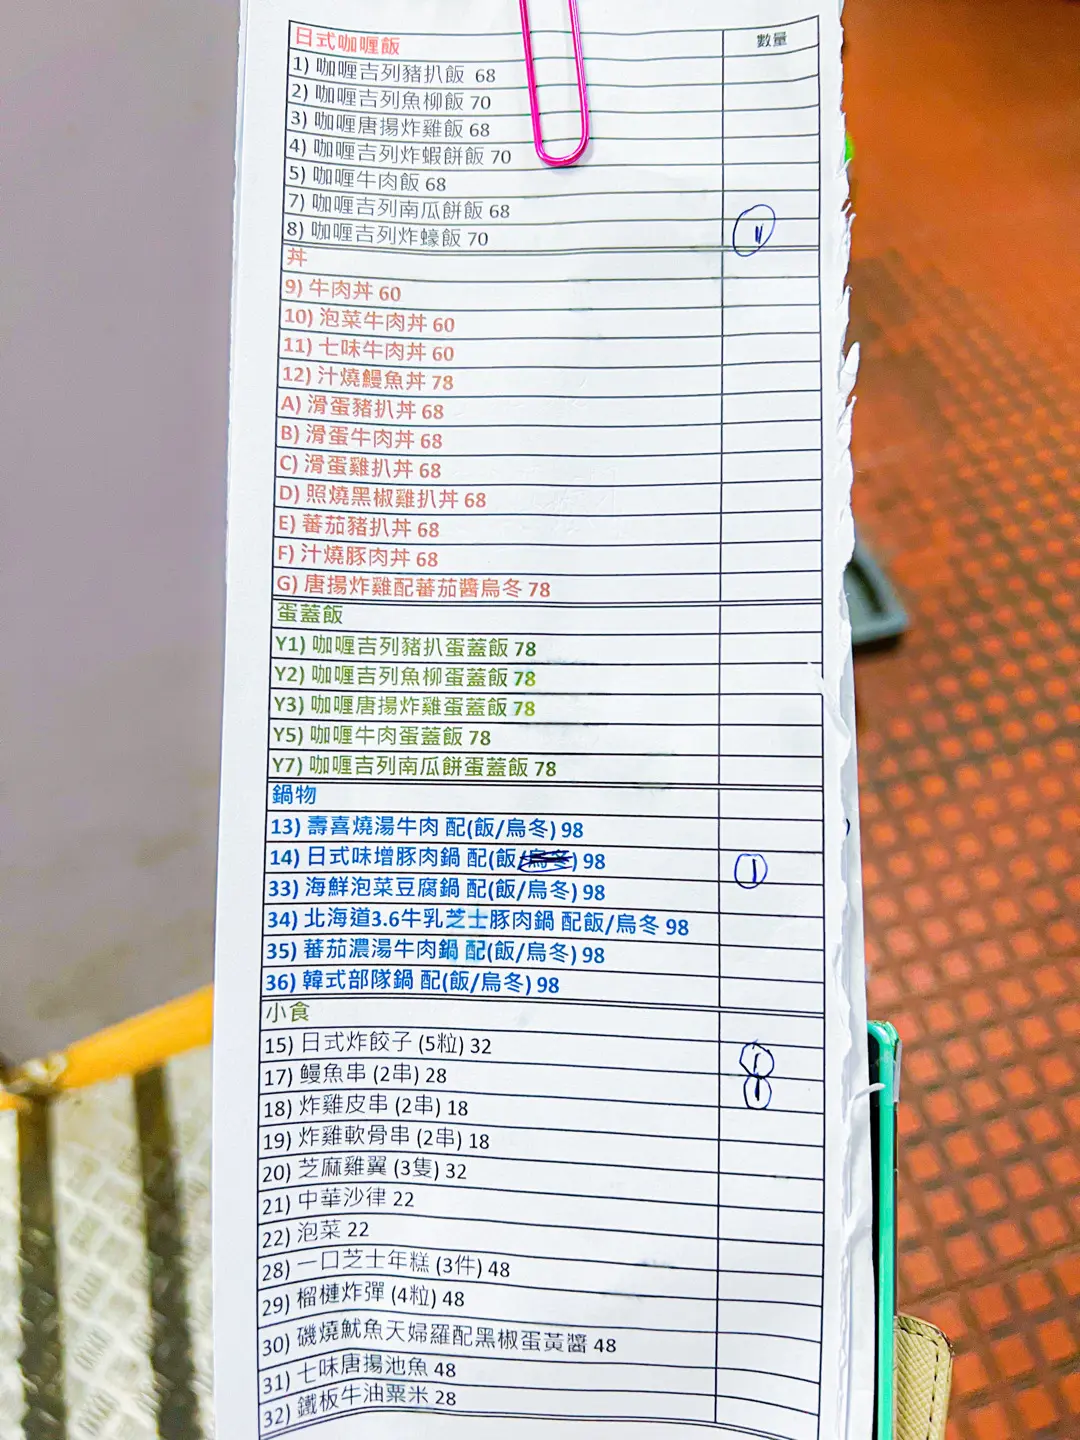 日式咖喱飯 數量
1) 咖喱吉列豬扒飯 68
2) 咖喱吉列魚柳飯 70
3) 咖喱唐揚炸雞飯 68
4) 咖喱吉列炸蝦餅飯 70
5) 咖喱牛肉飯 68
7) 咖喱吉列南瓜餅飯 68
8) 咖喱吉列炸蠔飯 70 11
丼
9) 牛肉丼 60
10) 泡菜牛肉丼 60
11) 七味牛肉丼 60
12) 汁燒鰻魚丼 78
A) 滑蛋豬扒丼 68
B) 滑蛋牛肉丼 68
C) 滑蛋雞扒丼 68
D) 照燒黑椒雞扒丼 68
E) 蕃茄豬扒丼 68
F) 汁燒豚肉丼 68
G) 唐揚炸雞配蕃茄醬烏冬 78
蛋蓋飯
Y1) 咖喱吉列豬扒蛋蓋飯 78
Y2) 咖喱吉列魚柳蛋蓋飯 78
Y3) 咖喱唐揚炸雞蛋蓋飯 78
Y5) 咖喱牛肉蛋蓋飯 78
Y7) 咖喱吉列南瓜餅蛋蓋飯 78
鍋物
13) 壽喜燒湯牛肉 配(飯/烏冬) 98
14) 日式味增豚肉鍋 配(飯/烏冬) 98 1
33) 海鮮泡菜豆腐鍋 配(飯/烏冬) 98
34) 北海道3.6牛乳芝士豚肉鍋 配飯/烏冬 98
35) 蕃茄濃湯牛肉鍋 配(飯/烏冬) 98
36) 韓式部隊鍋 配(飯/烏冬) 98
小食
15) 日式炸餃子 (5粒) 32 1
17) 鰻魚串 (2串) 28 1
18) 炸雞皮串 (2串) 18
19) 炸雞軟骨串 (2串) 18
20) 芝麻雞翼 (3隻) 32
21) 中華沙律 22
22) 泡菜 22
28) 一口芝士年糕 (3件) 48
29) 榴槤炸彈 (4粒) 48
30) 磯燒魷魚天婦羅配黑椒蛋黃醬 48
31) 七味唐揚池魚 48
32) 鐵板牛油粟米 28